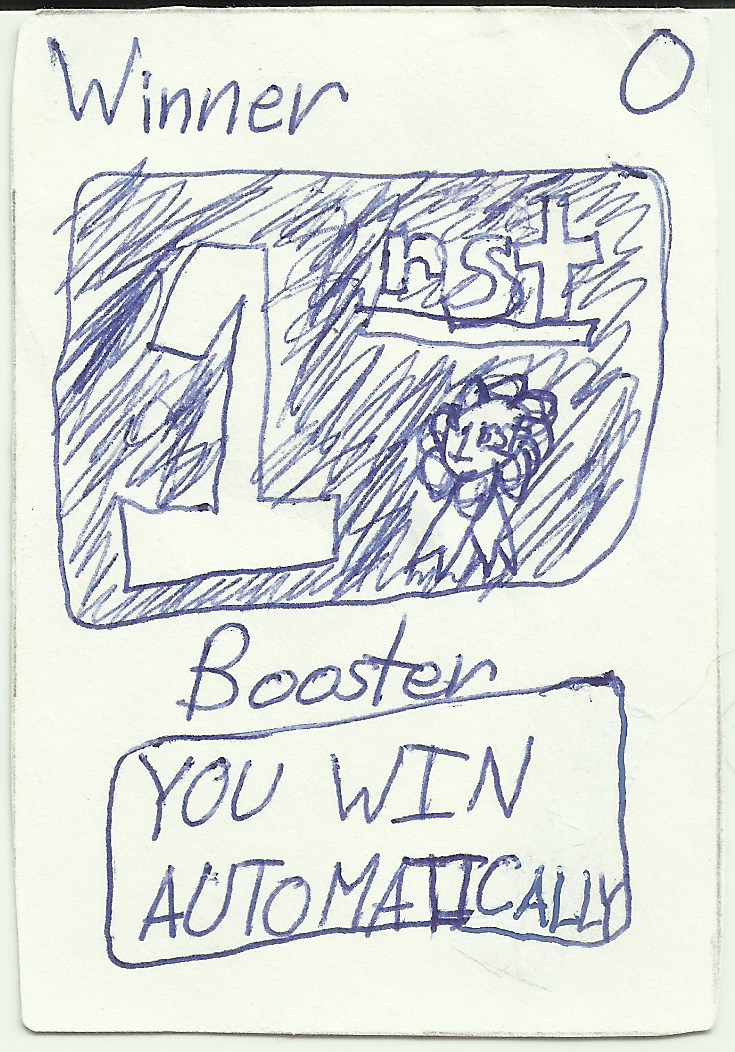 Winner 0
1 rst
1rst
Booster
YOU WIN
AUTOMATICALLY